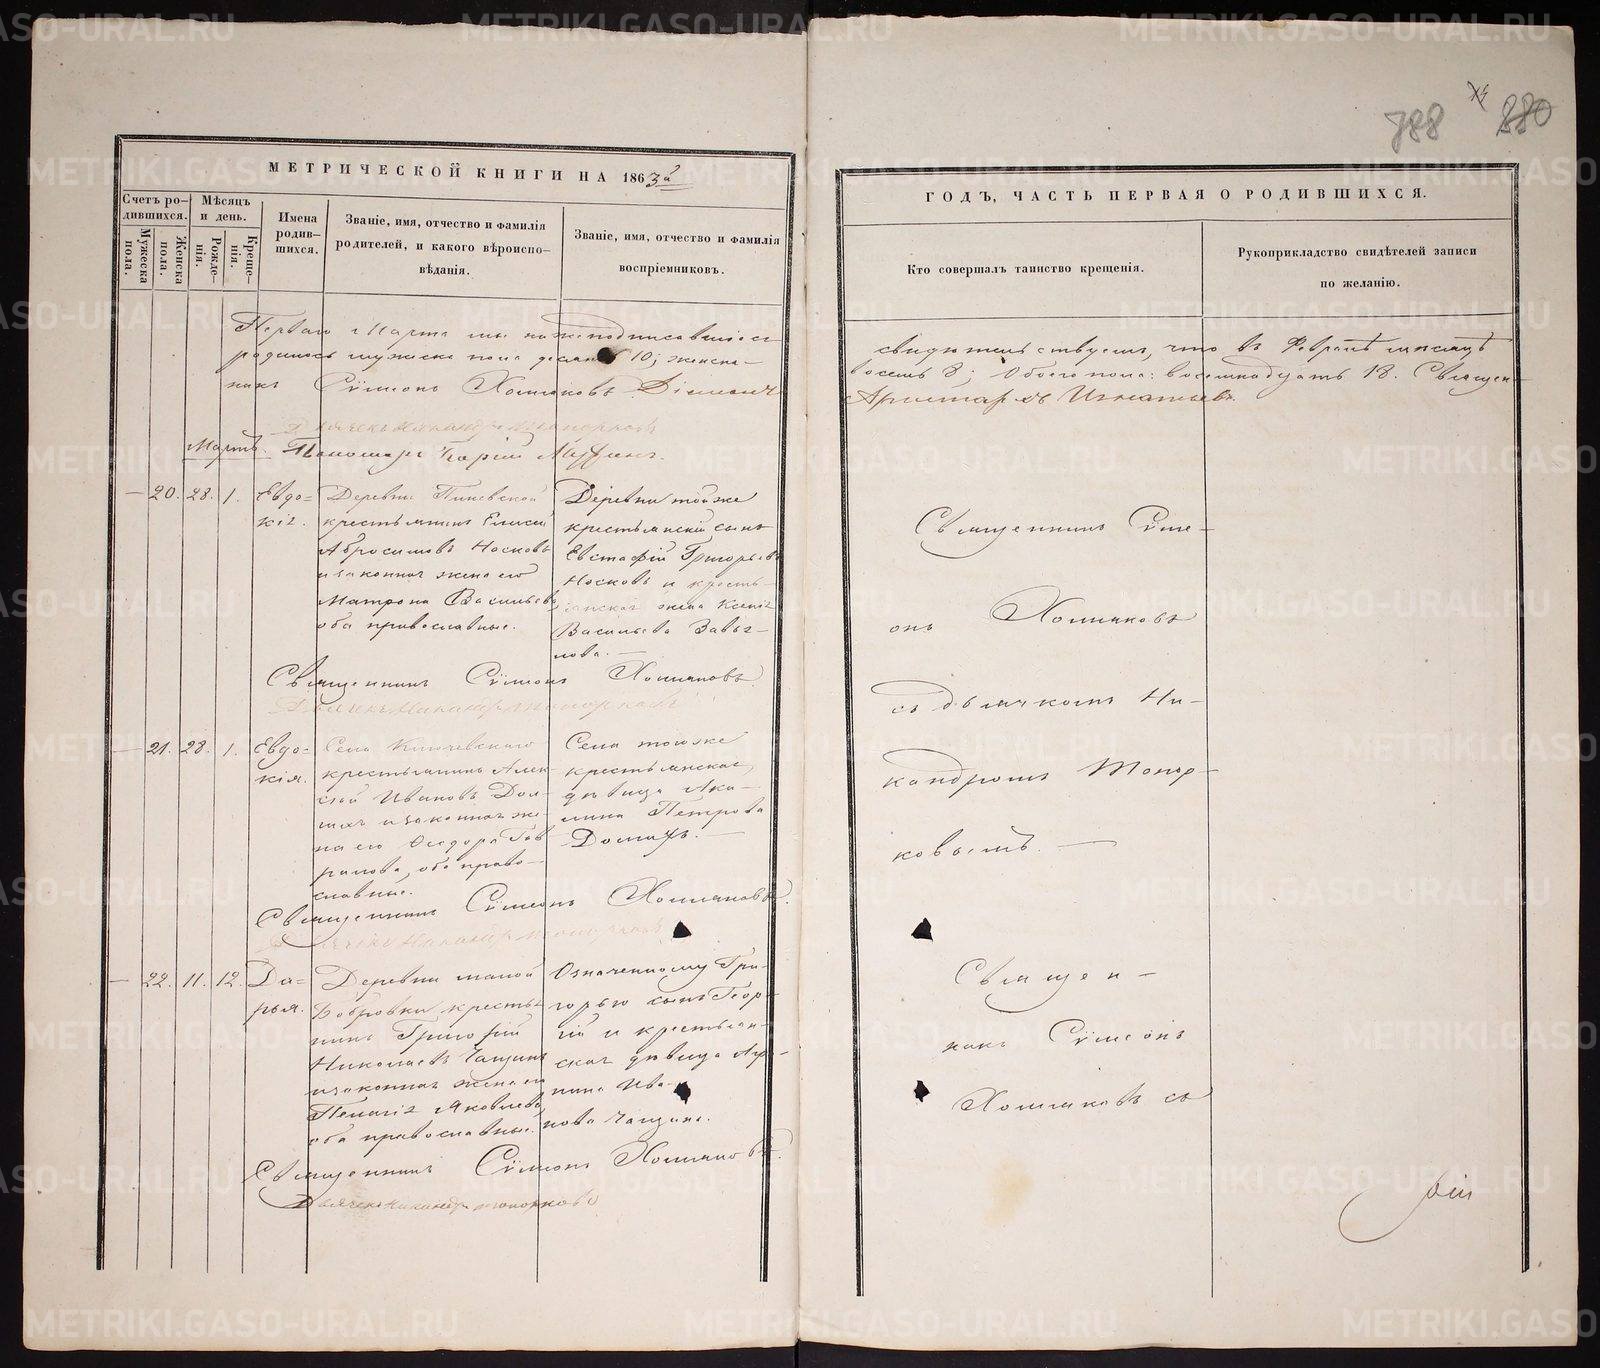 788 880
МЕТРИЧЕСКОЙ КНИГИ НА 1863й
ГОДЪ, ЧАСТЬ ПЕРВАЯ О РОДИВШИХСЯ.
Счетъ ро-
дившихся.
Мужеска
пола.
Женска
пола.
Мѣсяцъ
и день.
Рожде-
нія.
Креще-
нія.
Имена
родив-
шихся.
Званіе, имя, отчество и фамилія
родителей, и какого вѣроиспо-
вѣданія.
Званіе, имя, отчество и фамилія
воспріемниковъ.
Кто совершалъ таинство крещенія.
Рукоприкладство свидѣтелей записи
по желанію.
Перваго Марта мы нижеподписавшіеся
свидѣтельствуемъ, что въ Февралѣ мѣсяцѣ
родилось мужеска пола десять 10; женска
восемь 8; Обоего пола: восемнадцать 18. Священ-
никъ Сѵмеонъ Хомяковъ Діаконъ
Аристархъ Игнатьевъ
Дьячекъ Никандръ Топорковъ
Мартъ. Пономарь
20. 28. 1. Евдо-
кія.
Деревни
крестьянинъ Елисей
Абросимовъ Носковъ
и законная жена его
Матрона Васильева
оба православные.
Деревни тойже
крестьянскій сынъ
Евстафій Григорьевъ
Носковъ и кресть-
янская жена Ксенія
Васильева Завья-
лова.
Священникъ Сѵме-
онъ Хомяковъ
съ дьячкомъ Ни-
кандромъ Топор-
ковымъ.
Священникъ Сѵмеонъ Хомяковъ
Дьячекъ Никандръ Топорковъ
21. 28. 1. Евдо-
кія.
Села Ключевскаго
крестьянинъ Алек-
сѣй Ивановъ
и законная же-
на его Ѳеодора Гав-
рилова, оба право-
славные.
Села тогоже
крестьянская
дѣвица Аку-
лина Петрова
Священникъ Сѵмеонъ Хомяковъ.
Дьячекъ Никандръ Топорковъ
22. 11. 12. Да-
рья.
Деревни малой
Бобровки крестья-
нинъ Григорій
Николаевъ Чащинъ
и законная жена его
Пелагія Яковлева
оба православные.
Означенному Гри-
горью сынъ Геор-
гій и крестьян-
ская дѣвица Ири-
нина Ива-
нова Чащина.
Священ-
никъ Сѵмеонъ
Хомяковъ съ
Священникъ Сѵмеонъ Хомяковъ.
Дьячекъ Никандръ Топорковъ
METRIKI.GASO-URAL.RU